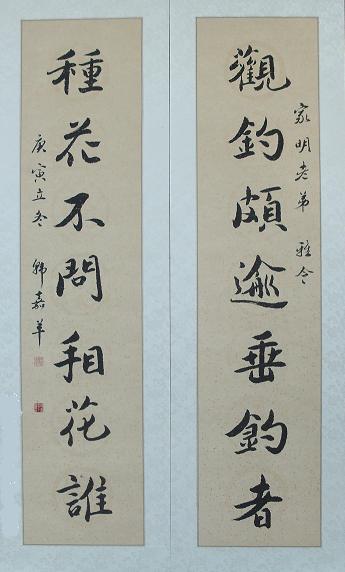 家明老弟 雅令
觀釣頗逾垂釣者
種花不問看花誰
庚寅立冬 韓嘉羊